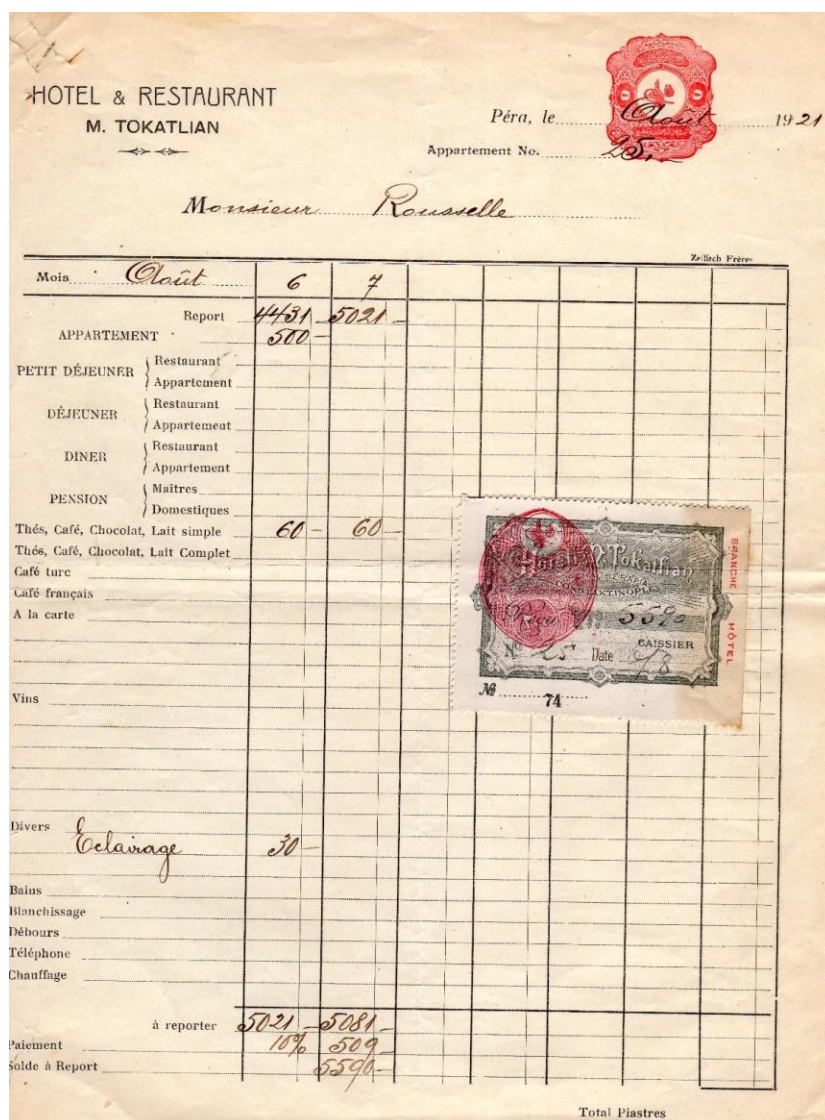 HOTEL & RESTAURANT
M. TOKATLIAN
Péra, le Août 1921
Appartement No. 25.
Monsieur Rousselle
Zellitch Frères
Mois Août 6 7
Report 4431 - 5021 -
APPARTEMENT 500 -
PETIT DÉJEUNER Restaurant
Appartement
DÉJEUNER Restaurant
Appartement
DINER Restaurant
Appartement
PENSION Maîtres
Domestiques
Thés, Café, Chocolat, Lait simple 60 - 60 -
Thés, Café, Chocolat, Lait Complet
Café turc
Café français
A la carte
Vins
Divers
Eclairage 30 -
Bains
Blanchissage
Débours
Téléphone
Chauffage
à reporter 5021 - 5081 -
Paiement 10% 509 -
Solde à Report 5590 -
Total Piastres
Hotel M. Tokatlian
CONSTANTINOPLE
Reçu 5590
CAISSIER
No 25 Date 7/8
No 74
BRANCHE HÔTEL